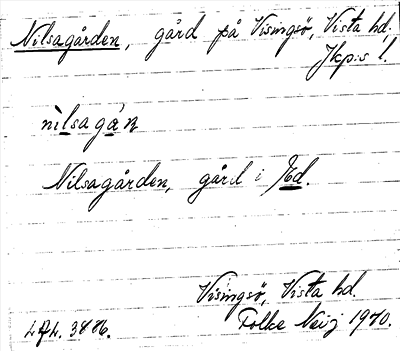 Nilsagården, gård på Visingsö, Vista hd.
Jkp:s l.
nìlsagán
Nilsagården, gård i Ed.
Visingsö, Vista hd.
Folke Neij 1970.